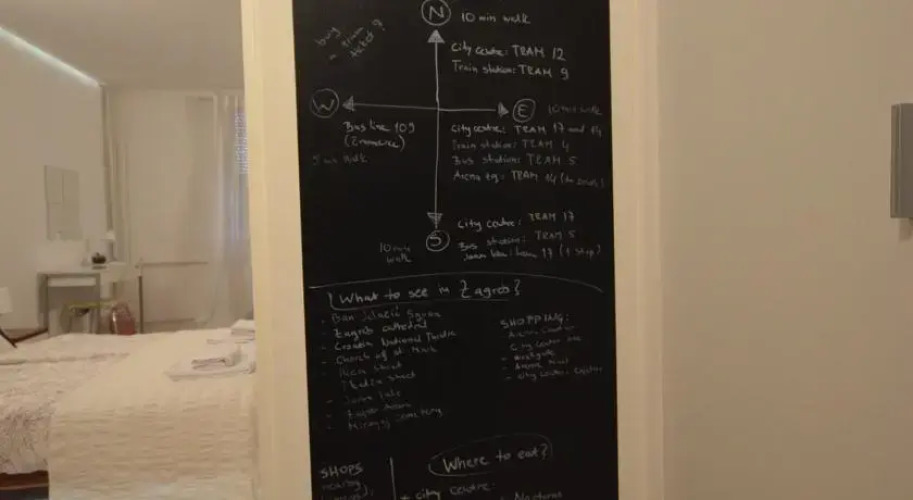 buy
a tram
ticket?
N 10 min walk
City centre: TRAM 12
Train station: TRAM 9
W
E
10 min walk
Bus line 109
5 min walk
City centre: TRAM 17 and 14
Train station: TRAM 4
Bus station: TRAM 5
TRAM 14
S
10 min
walk
City centre: TRAM 17
Bus station: TRAM 5
17 (1 stop)
What to see in Zagreb?
- Ban Jelačić Square
- Zagreb cathedral
- Croatian National Theatre
- Church of st Mark
- Ilica street
- Tkalča street
- Jarun lake
- Zagreb Arena
- Mirogoj cemetery
SHOPPING:
- City Center one
- Avenue Mall
- City Center
SHOPS
nearby:
Where to eat?
City centre: